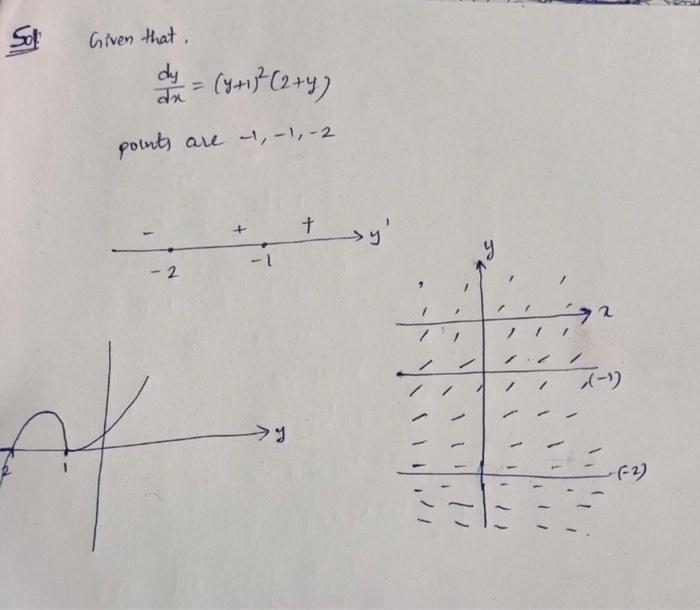 Sol:
Given that,
dy/dx = (y+1)²(2+y)
points are -1, -1, -2
- + + y'
-2 -1
y
x
(-1)
(-2)
y
2 1